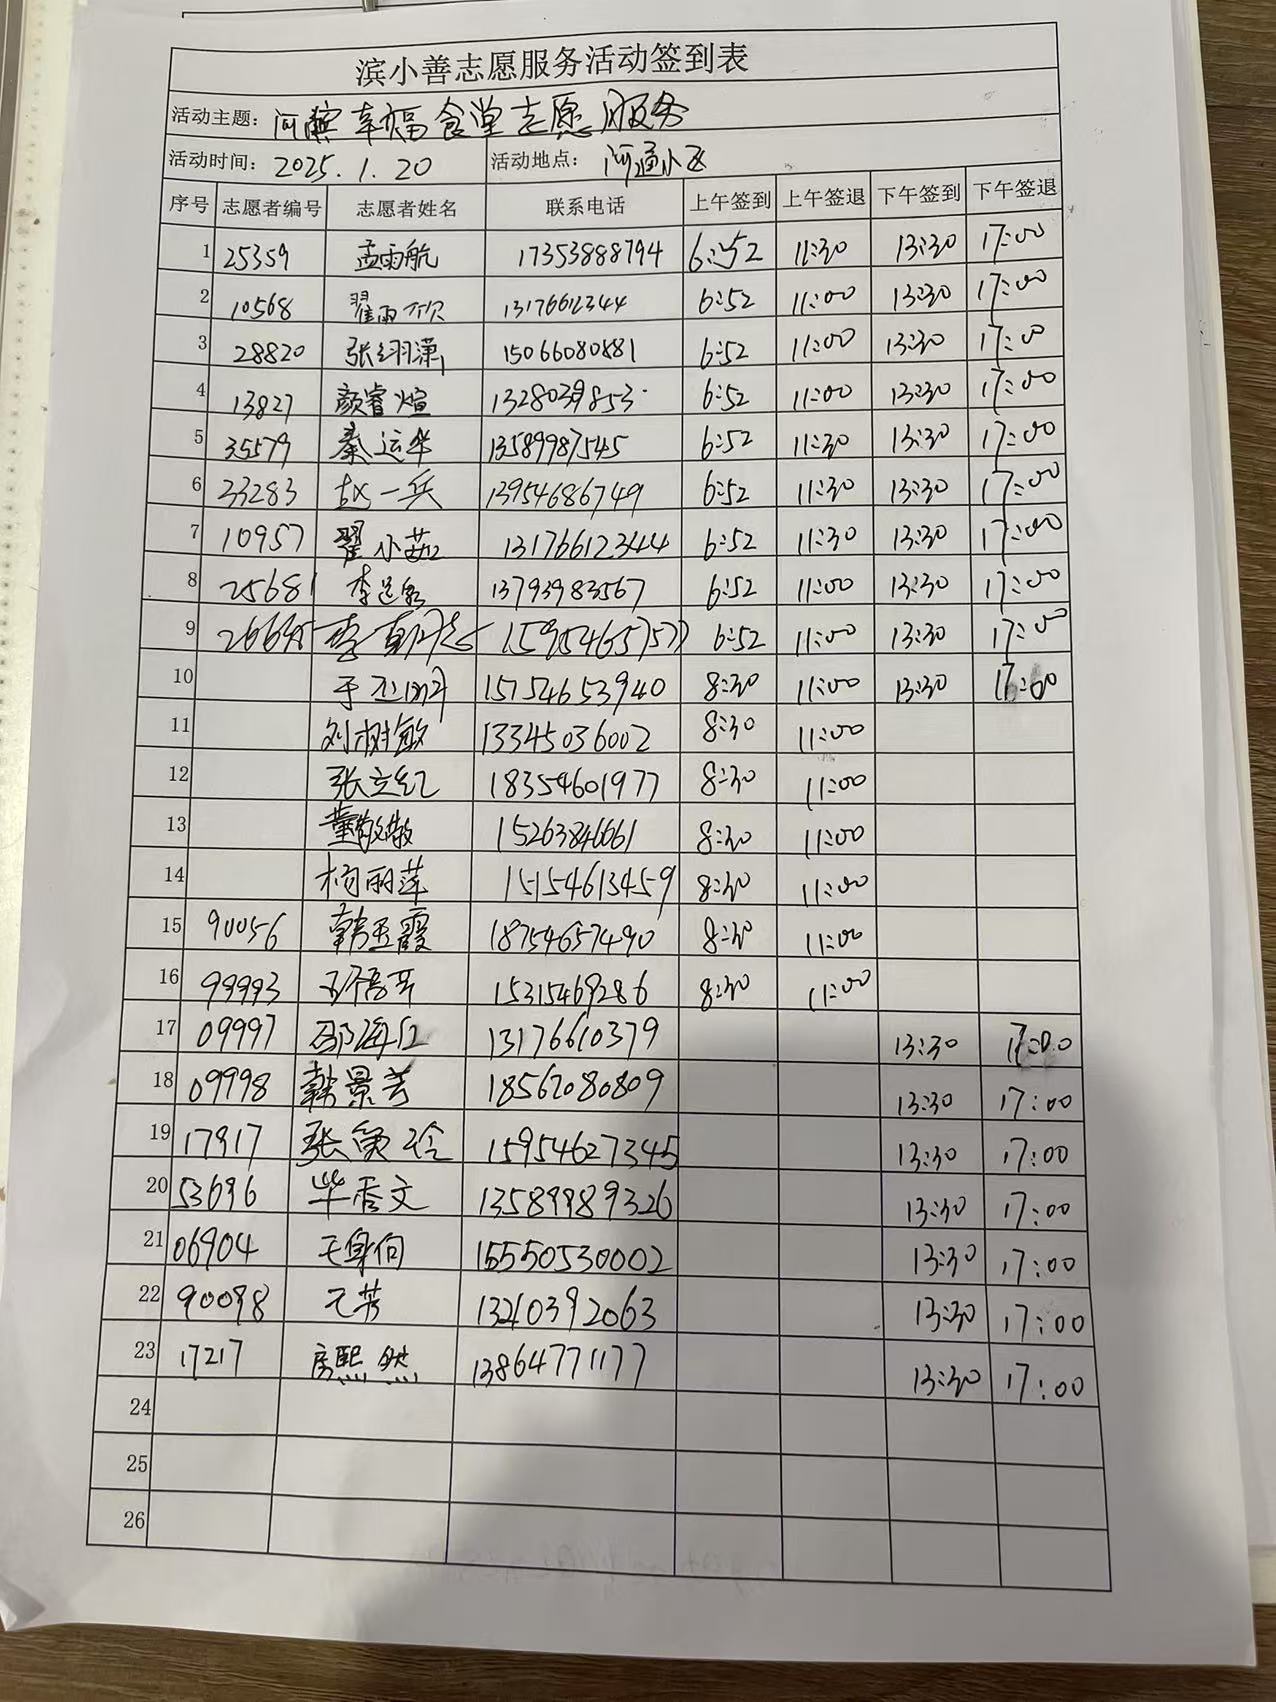 滨小善志愿服务活动签到表
活动主题: 河滨幸福食堂志愿服务
活动时间: 2025.1.20 活动地点: 河通小区
序号 志愿者编号 志愿者姓名 联系电话 上午签到 上午签退 下午签到 下午签退
1 25359 孟雨航 17353888794 6:52 11:30 13:30 17:00
2 10568 翟雨欣 13176612344 6:52 11:00 13:30 17:00
3 28820 张翊潇 15066080881 6:52 11:00 13:30 17:00
4 13827 颜睿煊 1328039853 6:52 11:00 13:30 17:00
5 35579 秦运华 13589987545 6:52 11:30 13:30 17:00
6 33283 赵一兵 13954686749 6:52 11:30 13:30 17:00
7 10957 翟小茹 13176612344 6:52 11:30 13:30 17:00
8 25681 李 13793983567 6:52 11:00 13:30 17:00
9 李 6:52 11:00 13:30 17:00
10 于 15754653940 8:30 11:00 13:30 17:00
11 刘树敏 13345036002 8:30 11:00
12 张立红 18354601977 8:30 11:00
13 董敬敬 15263846661 8:30 11:00
14 杨丽萍 15154613459 8:30 11:00
15 90056 韩玉霞 18754657490 8:30 11:00
16 99993 15315469286 8:30 11:00
17 09997 邵海红 13176610379 13:30 17:00
18 09998 韩景芳 18562080809 13:30 17:00
19 17917 张负玲 15954627345 13:30 17:00
20 53696 毕秀文 13589989326 13:30 17:00
21 06904 15550530002 13:30 17:00
22 90098 芳 13210392063 13:30 17:00
23 17217 房熙然 13864771177 13:30 17:00
24
25
26